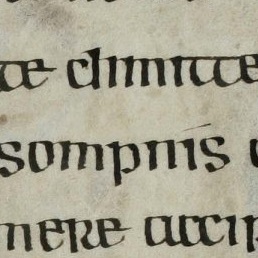 te dimitte
sompniis
mere accip